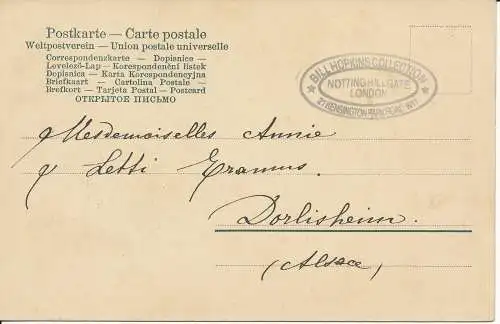 Postkarte — Carte postale
Weltpostverein — Union postale universelle
Correspondenzkarte — Dopisnice —
Levelező-Lap — Korespondenční lístek
Dopisnica — Karta Korespondencyjna
Briefkaart — Cartolina Postale —
Brefkort — Tarjeta Postal — Postcard
ОТКРЫТОЕ ПИСЬМО
BILL HOPKINS COLLECTION
NOTTING HILL GATE
LONDON
KENSINGTON PARK ROAD, W11
Mesdemoiselles Annie
& Letti Eramus.
Dorlisheim
(Alsace)